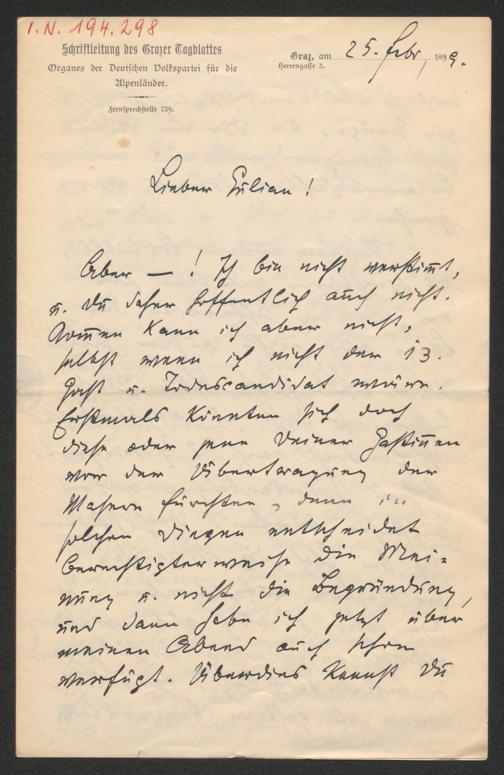 I.N. 194.298
Schriftleitung des Grazer Tagblattes
Organes der Deutschen Volkspartei für die
Alpenländer.
Fernsprechstelle 759.
Graz, am 25. Febr. 1899.
Herrengasse 3.
Lieber Julian!
Aber — ! Ich bin nicht verstimt,
u. du daher hoffentlich auch nicht.
Kommen kann ich aber nicht,
selbst wenn ich nicht der 13.
Gast u. Todescandidat wäre.
Erstmals könnten sich doch
diese oder jene Deiner Gastinen
vor der Übertragung der
Masern fürchten, denn in
solchen Dingen entscheidet
berechtigterweise die Mei-
nung u. nicht die Begründung,
und dann habe ich jetzt über
meinen Abend auch schon
verfügt. Überdies kennst Du